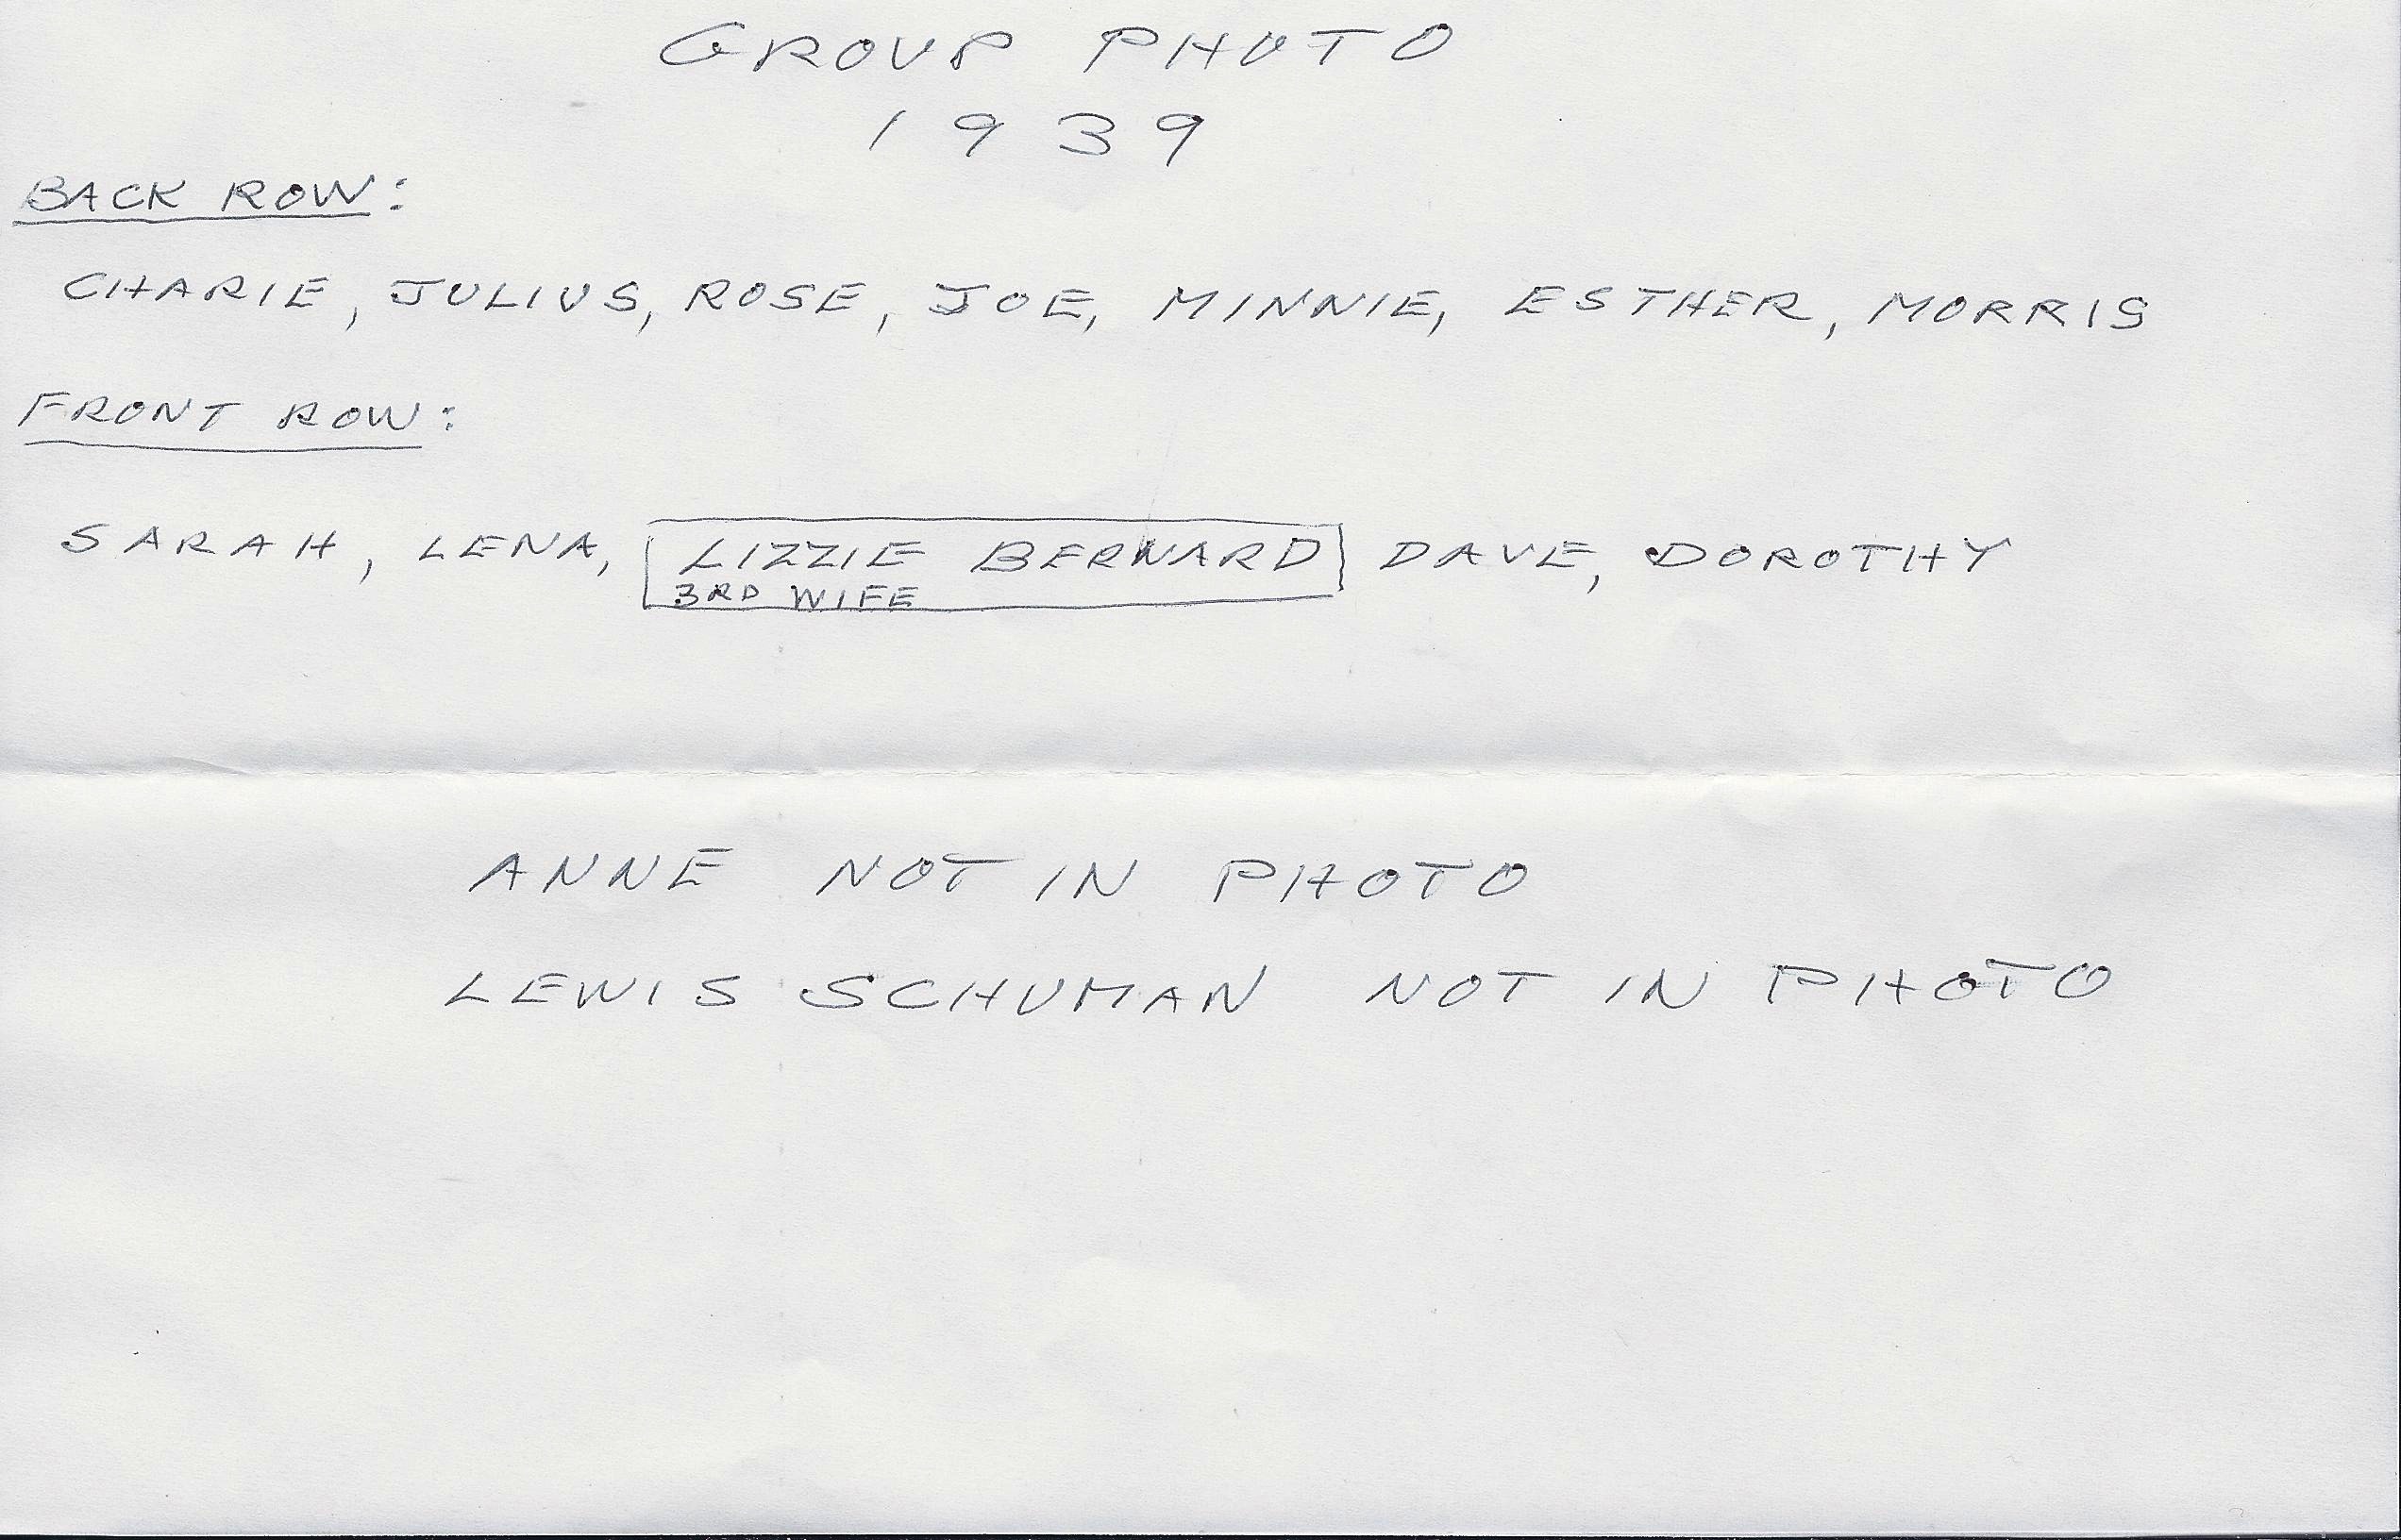 GROUP PHOTO
1939
BACK ROW:
CHARIE, JULIUS, ROSE, JOE, MINNIE, ESTHER, MORRIS
FRONT ROW:
SARAH, LENA, LIZZIE BERNARD DAVE, DOROTHY
3RD WIFE
ANNE NOT IN PHOTO
LEWIS SCHUMAN NOT IN PHOTO